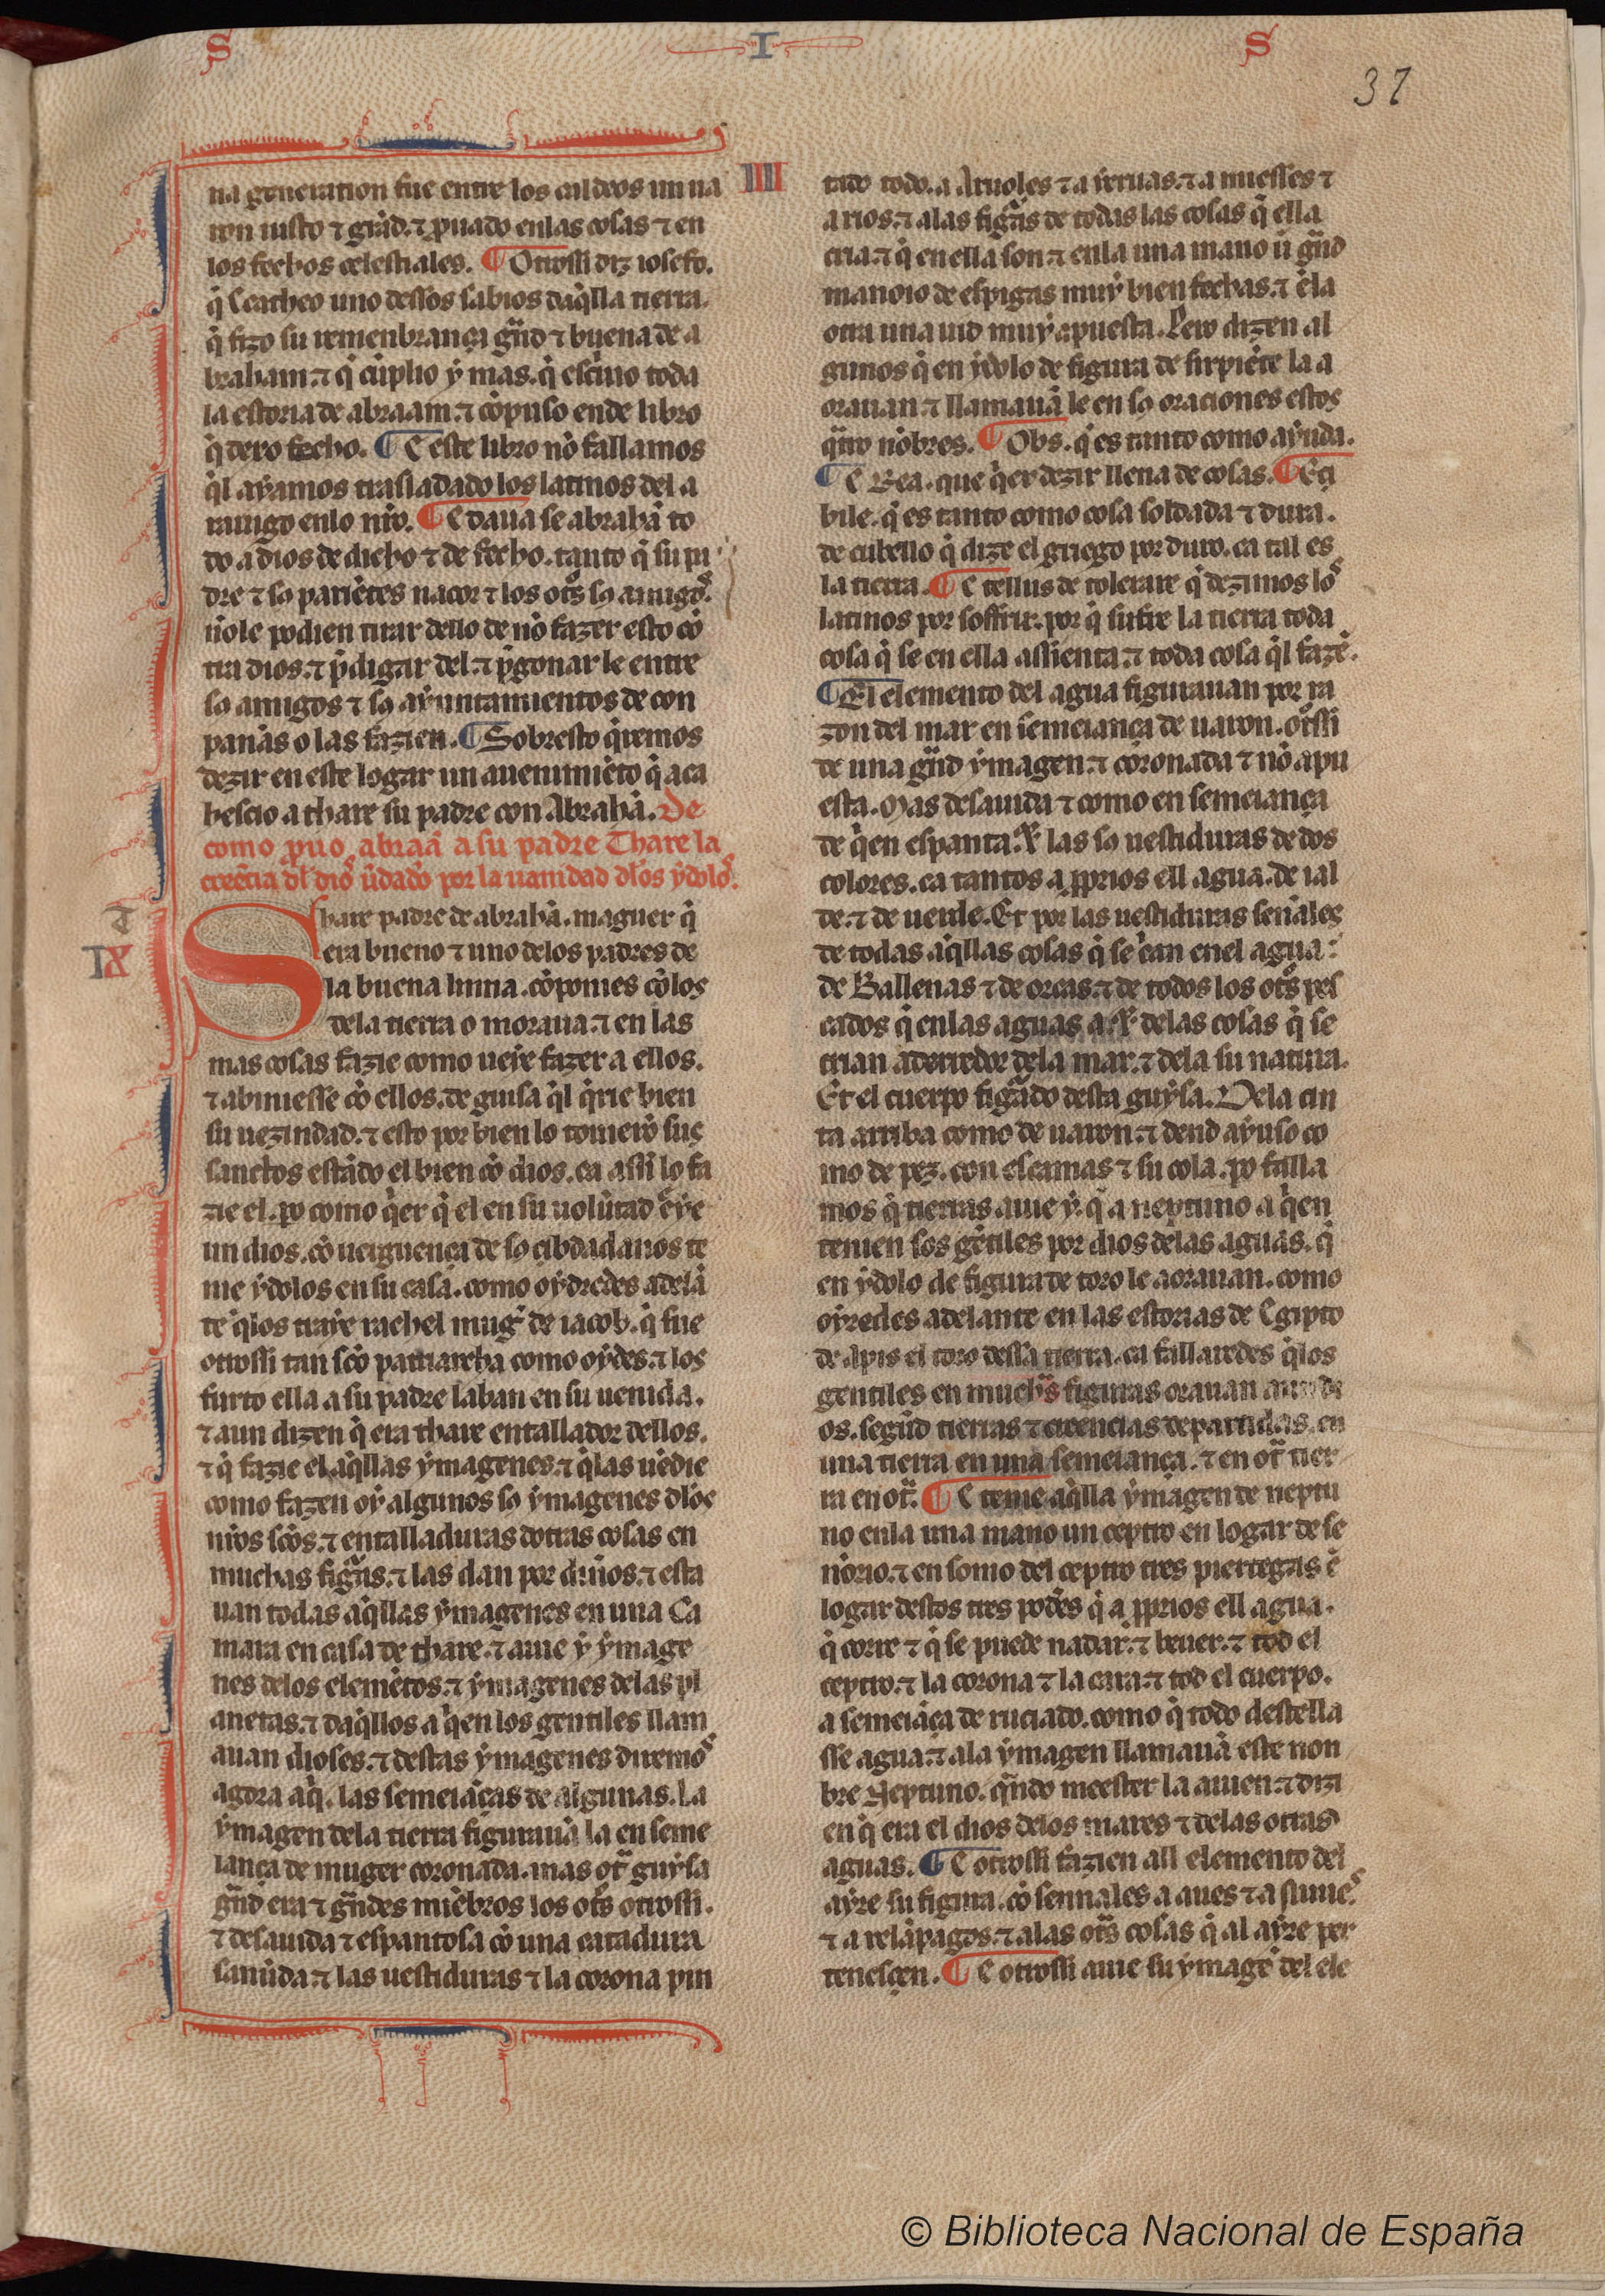 S I S
37
na generation fue entre los caldeos un ua
ron iusto ⁊ grãd. ⁊ prouado enlas cosas ⁊ en
los fechos celestiales. ¶ Otrossi diz iosefo.
q̃ Ecatheo uno dessos sabios daq̃lla tierra.
q̃ fizo su remenbrança grñd ⁊ buena de a
braham. ⁊ q̃ cũplio ẏ mas. q̃ escriuo toda
la estoria de abraam. ⁊ cõpuso ende libro
q̃ dexo fecho. ¶ E este libro nõ fallamos
q̃l aẏamos trasladado los latinos del a
rauigo enlo nr̃o. ¶ E daua se abrahã to
do a dios de dicho ⁊ de fecho. tanto q̃ su pa
dre ⁊ sꝯ pariẽtes nacor ⁊ los otr̃s sꝯ amigos
nõle podien tirar dello de nõ fazer esto cõ
tra dios. ⁊ p̃digar del. ⁊ p̃gonar le entre
sꝯ amigos ⁊ sꝯ aẏuntamientos de con
panãs o las fazien. ¶ Sobresto q̃remos
dezir en este logar un auenimiẽto q̃ aca
hescio a thare su padre con Abrahã. De
como prouo abraã a su padre Thare la
creẽcia dl̃ dios ũdadero por la uanidad dl̃os ẏdolos.
IX
Thare padre de abrahã. maguer q̃
era bueno ⁊ uno delos padres de
la buena linna. cõponies cõ los
dela tierra o moraua. ⁊ en las
mas cosas fazie como ueẏe fazer a ellos.
⁊ abiniesse cõ ellos. de guisa q̃l q̃rie bien
su uezindad. ⁊ esto por bien lo touierõ sus
sanctos estãdo el bien cõ dios. ca assi lo fa
zie el. po como q̃er q̃ el en su uolũtad creẏe
un dios. cõ uerguença de sꝯ cibdadanos te
nie ẏdolos en su casa. como oẏdredes adelã
te q̃los traẏe rachel mug̃ de iacob. q̃ fue
otrossi tan scõ patriarcha como oẏdes. ⁊ los
furto ella a su padre laban en su uenida.
⁊ aun dizen q̃ era thare entallador dellos.
⁊ q̃ fazie el aq̃llas ẏmagenes. ⁊ q̃las uẽdie
como fazen oẏ algunos sꝯ ẏmagenes dl̃os
nr̃os scõs. ⁊ entalladuras dotras cosas en
muchas figr̃as. ⁊ las dan por dinos. ⁊ esta
uan todas aq̃llas ẏmagenes en una Ca
mara en casa de thare. ⁊ auie ẏ ẏmage
nes delos elemẽtos. ⁊ ẏmagenes delas pl
anetas. ⁊ daq̃llos a q̃en los gentiles llam
auan dioses. ⁊ destas ẏmagenes diremos
agora aq̃. las semeiãças de algunas. La
ẏmagen dela tierra figurauã la en seme
iança de muger coronada. mas otr̃ guẏsa
grñd era ⁊ grñdes miẽbros los otr̃s otrossi.
⁊ desauida ⁊ espantosa cõ una catadura
sanuda. ⁊ las uestiduras ⁊ la corona pin
III
tado todo. a Aruoles ⁊ a ẏeruas. ⁊ a miesses ⁊
a rios. ⁊ alas figr̃as de todas las cosas q̃ ella
cria. ⁊ q̃ en ella son. ⁊ enla una mano ũ grñd
manoio de espigas muẏ bien fechas. ⁊ ẽla
otra una uid muẏ apuesta. Pero dizen al
gunos q̃ en ẏdolo de figura de sirpiẽte la a
orauan. ⁊ llamauã le en sꝯ oraciones estos
q̃tro nõbres. ¶ Obs. q̃ es tanto como aẏuda.
¶ E Rea. que q̃er dezir llena de cosas. ¶ E çi
bile. q̃ es tanto como cosa soldada ⁊ dura.
de cubello q̃ dize el griego por duro. ca tal es
la tierra. ¶ E tellus de tolerare q̃ dezimos los
latinos por soffrir. por q̃ sufre la tierra toda
cosa q̃ se en ella assienta. ⁊ toda cosa q̃l fazẽ.
¶ El elemento del agua figurauan por ra
zon del mar en semeiança de uaron. otr̃ssi
de una grñd ẏmagen. ⁊ coronada ⁊ nõ apu
esta. Mas desauida ⁊ como en semeiança
de q̃en espanta. ⁊ las sꝯ uestiduras de dos
colores. ca tantos a p̃prios ell agua. de ial
de. ⁊ de uerde. Et por las uestiduras senãles
de todas aq̃llas cosas q̃ se crian enel agua:
de Ballenas ⁊ de orcas. ⁊ de todos los otr̃s pes
cados q̃ enlas aguas a. ⁊ delas cosas q̃ se
crian aderredor dela mar. ⁊ dela su natura.
Et el cuerpo figr̃ado desta guẏsa. Dela cin
ta arriba como de uaron. ⁊ dend aẏuso co
mo de pez. con escamas ⁊ su cola. po falla
mos q̃ tierras auie ẏ. q̃ a neptuno a q̃en
tenien los gẽtiles por dios delas aguas. q̃
en ẏdolo de figura de toro le aorauan. como
oẏredes adelante en las estorias de Egipto
de Apis el toro dessa tierra. ca fallaredes q̃los
gentiles en much̃s figuras orauan
os. segũd tierras ⁊ creencias departidas. en
una tierra en una semeiança. ⁊ en otr̃ tier
ra en otr̃. ¶ E tenie aq̃lla ẏmagen de neptu
no enla una mano un ceptro en logar de se
ñorio. ⁊ en somo del ceptro tres piertegas ẽ
logar destos tres podẽs q̃ a p̃prios ell agua.
q̃ corre ⁊ q̃ se puede nadar. ⁊ beuer. ⁊ tod el
ceptro. ⁊ la corona ⁊ la cara. ⁊ tod el cuerpo.
a semeiãça de ruciado. como q̃ todo destella
sse agua. ⁊ ala ẏmagen llamauã este non
bre Neptuno. q̃ndo meester la auien. ⁊ dizi
en q̃ era el dios delos mares ⁊ delas otras
aguas. ¶ E otrossi fazien all elemento del
aẏre su figura. cõ sennales a aues ⁊ a
⁊ a relãpagos. ⁊ alas otr̃s cosas q̃ al aẏre per
tenescen. ¶ E otrossi auie su ẏmagẽ del ele
© Biblioteca Nacional de España